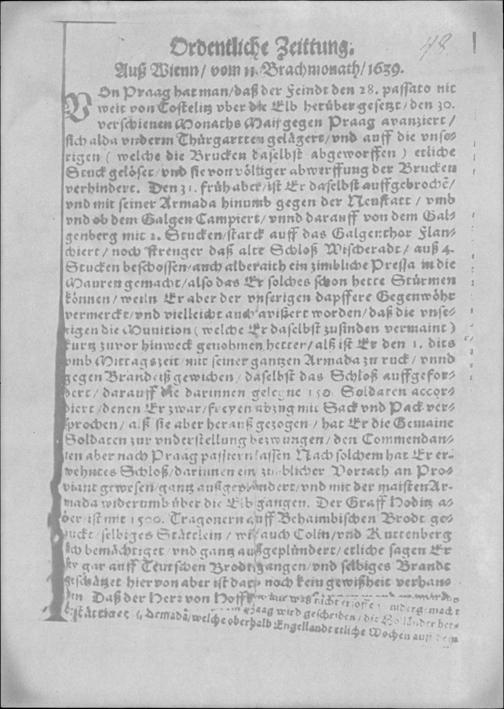 48
Ordentliche Zeittung.
Auß Wienn / vom 11. Brachmonath / 1639.
VOn Praag hat man / daß der Feindt den 28. passato nit
weit von Costelitz vber die Elb herüber gesetzt / den 30.
verschienen Monaths Maij gegen Praag avanziert /
sich alda vnderm Thürgartten gelägert / vnd auff die vnse-
rigen ( welche die Brucken daselbst abgeworffen ) etliche
Stuck gelöset / vnd sie von völtiger abwerffung der Brucken
verhindert. Den 31. früh aber / ist Er daselbst auffgebrochẽ /
vnd mit seiner Armada hinumb gegen der Neustatt / vmb
vnd ob dem Galgen Campiert / vnnd darauff von dem Gal-
genberg mit 2. Stucken / starck auff das Galgenthor Flan-
chiert / noch strenger daß alte Schloß Wischeradt / auß 4.
Stucken beschossen / auch alberaith ein zimbliche Pressa in die
Mauren gemacht / also das Er solches schon hette Stürmen
können / weiln Er aber der vnserigen dapffere Gegenwöhr
vermerckt / vnd vielleicht auch avisiert worden / daß die vnse-
rigen die Munition ( welche Er daselbst zufinden vermaint )
kurtz zuvor hinweck genohmen hetten / alß ist Er den 1. dits
vmb Mittagszeit mit seiner gantzen Armada zu ruck / vnnd
gegen Brandeiß gewichen / daselbst das Schloß auffgefor-
dert / darauff die darinnen gelegne 150. Soldaten accor-
diert / denen Er zwar / freyen abzug mit Sack vnd Pack ver-
sprochen / alß sie aber herauß gezogen / hat Er die Gemaine
Soldaten zur vnderstellung bezwungen / den Commendan-
ten aber nach Praag passiern lassen Nach solchem hat Er er-
wehntes Schloß / darinnen ein zimblicher Vorrath an Pro-
viant gewesen / gantz außgeplündert / vnd mit der maisten Ar-
mada widerumb über die Elb gangen. Der Graff Hoditz a-
ber ist mit 1500. Tragonern auff Behaimbischen Brodt ge-
ruckt / selbiges Stättlein / wie auch Colin / vnd Kuttenberg
sich bemächtiget / vnd gantz außgeplündert / etliche sagen Er
sey gar auff Teutschen Brodt gangen / vnd selbiges Brandt
geschätzet hiervon aber ist daß noch kein gewißheit verhan-
den. Daß der Herz von Hoff
Praag wird geschriben / die Holländer
Armada / welche oberhalb Engellandt etliche Wochen auff dem